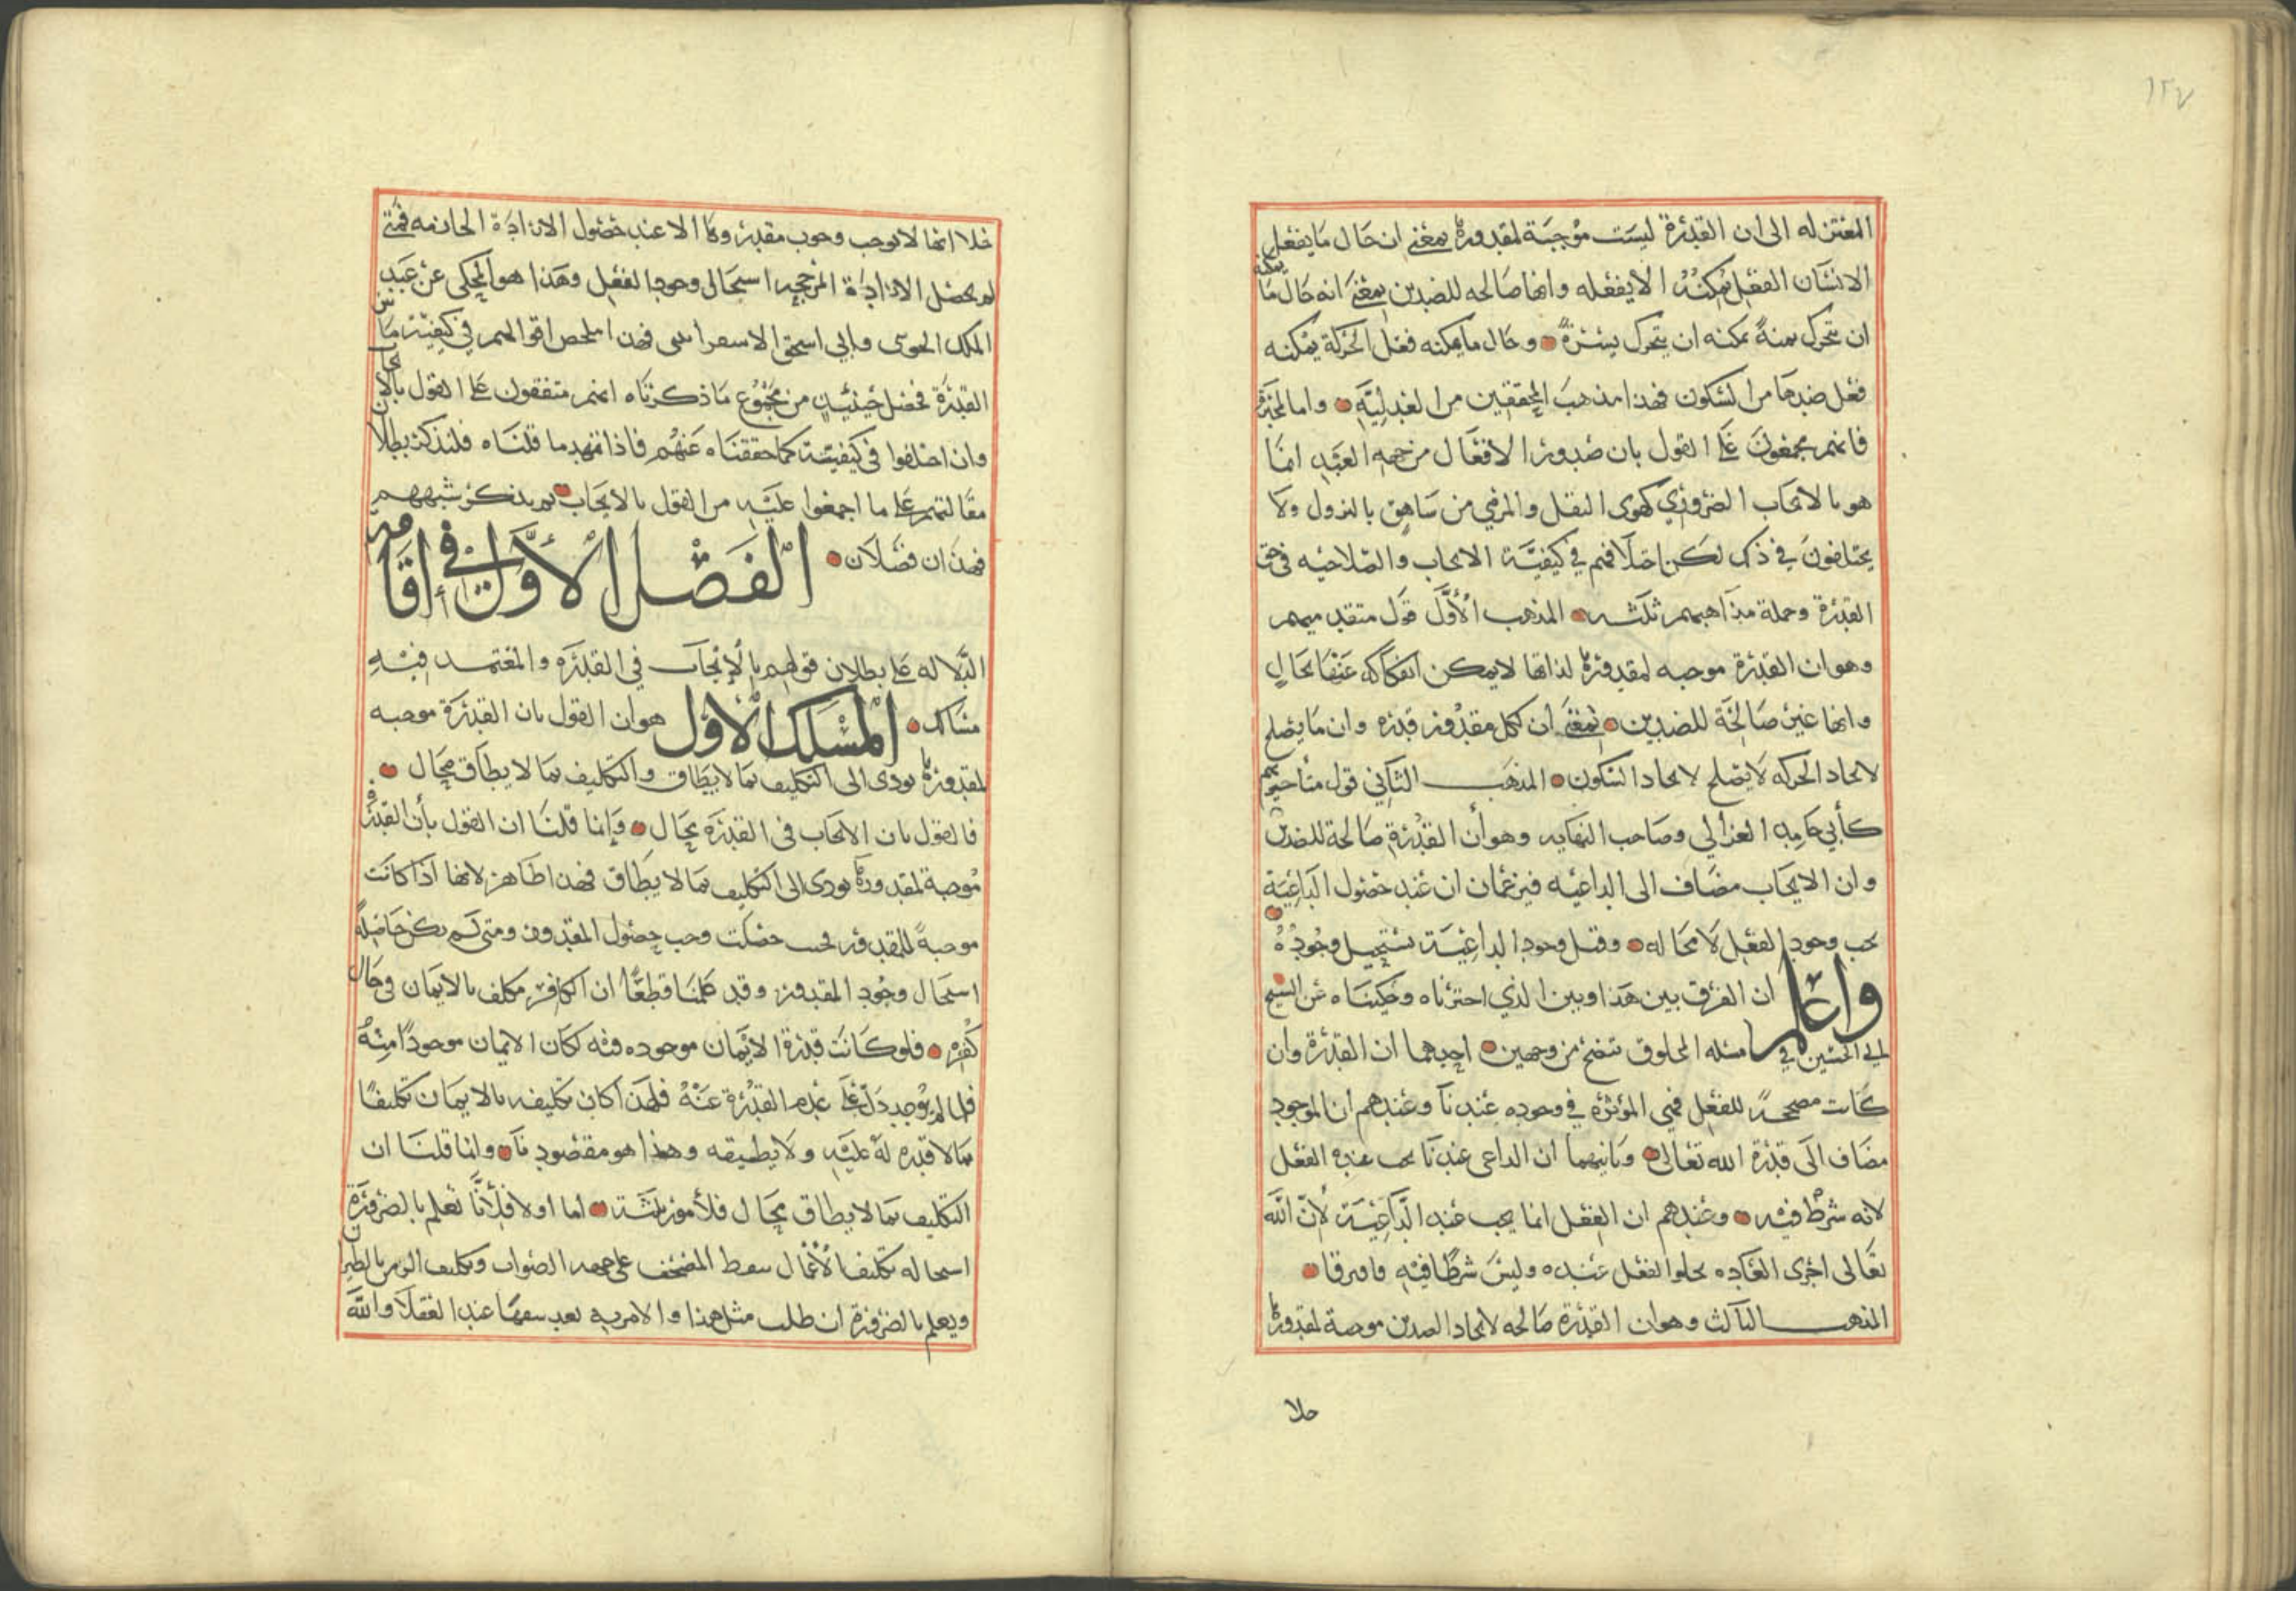 ١٢٧
المعتزله الى ان القدرة ليست موجبة لمقدورها بمعنى ان حال ما يفعل
الانسان الفعل يمكنه الا يفعله وانها صالحه للضدين بمعنى انه حال ما يمكنه
ان يتحرك يمنةً يمكنه ان يتحرك يسرةً وحال ما يمكنه فعل الحركة يمكنه
فعل ضدها من السكون فهذا مذهب المحققين من العدليه واما المجبرة
فانهم مجمعون على القول بان صدور الافعال من جهه العبد انما
هو بالايجاب الضروري كهوى الثقل والمرمي من شاهق بالنزول ولا
يختلفون في ذلك لكن اختلافهم في كيفية الايجاب والصلاحيه في حق
القدرة وجملة مذاهبهم ثلثه المذهب الأول قول متقدميهم
وهو ان القدرة موجبه لمقدورها لذاتها لا يمكن انفكاكه عنها بحال
وانها غير صالحة للضدين بمعنى ان لكل مقدور قدره وان ما يصلح
لايجاد الحركه لا يصلح لايجاد السكون المذهب الثاني قول متأخريهم
كأبي حامد الغزالي وصاحب النهايه وهو أن القدرة صالحة للضدين
وان الايجاب مضاف الى الداعيه فيزعمان ان عند حصول الداعية
يجب وجود الفعل لا محاله وقبل وجود الداعية يستحيل وجوده
واعلم ان الفرق بين هذا وبين الذي اخترناه وحكيناه عن الشيخ
ابي الحسين في مسئله المخلوق يتضح من وجهين احدهما ان القدرة وان
كانت مصححة للفعل فهي المؤثرة في وجوده عندنا وعندهم ان الموجود
مضاف الى قدرة الله تعالى وثانيهما ان الداعي عندنا يجب عنده الفعل
لانه شرط فيه وعندهم ان الفعل انما يجب عند الداعية لأن الله
تعالى اجرى العاده بخلق الفعل عنده وليس شرطا فيه فافترقا
المذهب الثالث وهو ان القدرة صالحه لايجاد الضدين موجبة لمقدورها
خلا
خلا انها لا توجب وجوب مقدورها الا عند حصول الارادة الجازمه فمتى
لم يحصل الارادة المرجحه استحال وجود الفعل وهذا هو المحكي عن عبد
الملك الجويني وابي اسحق الاسفرائيني فهذا ملخص اقوالهم في كيفية تأثير
القدرة فحصل حينئذٍ من مجموع ما ذكرناه انهم متفقون على القول بالايجاب
وان اختلفوا في كيفيته كما حققناه عنهم فاذا تمهد ما قلناه فلنذكر بطلان
مقالتهم على ما اجمعوا عليه من القول بالايجاب ثم نذكر شبههم
فهذان فصلان الفصل الأول في اقامة
الدلاله على بطلان قولهم بالإيجاب في القدره والمعتمد فيه
مسالك المسلك الأول هو ان القول بان القدرة موجبه
لمقدورها يودى الى التكليف بما لا يطاق والتكليف بما لا يطاق محال
فالقول بان الايجاب في القدره محال وإنما قلنا ان القول بأن القدرة
موجبة لمقدورها يودى الى التكليف بما لا يطاق فهذا ظاهر لانها اذا كانت
موجبةً للمقدور فحيث حصلت وجب حصول المقدور ومتى لم يكن حاصلة
استحال وجود المقدور وقد علمنا قطعًا ان الكافر مكلف بالايمان في حال
كفره فلو كانت قدرة الايمان موجوده فيه لكان الايمان موجودًا منه
فلما لم يوجد دل على عدم القدرة عنه فلهذا كان تكليفه بالايمان تكليفًا
بما لا قدره له عليه ولا يطيقه وهذا هو مقصودنا وانما قلنا ان
التكليف بما لا يطاق محال فلأمور ثلثة اما اولا فلأنا نعلم بالضرورة
استحاله تكليف الأعمال بنقط المصحف على جهه الصواب وتكليف الزمن بالطيران
ويعلم بالضرورة ان طلب مثل هذا والامر به يعد سفها عند العقلا والله